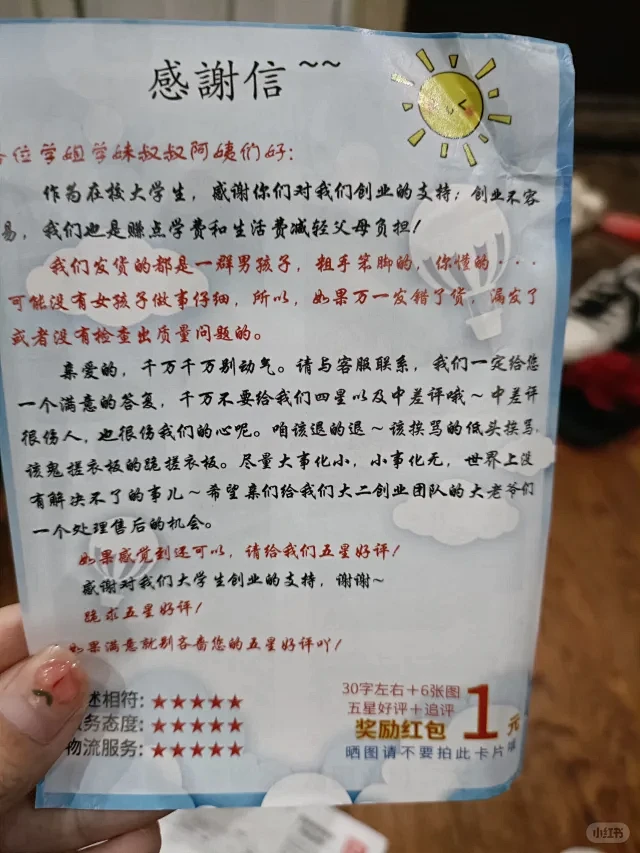 感謝信~~
各位学姐学妹叔叔阿姨们好：
作为在校大学生，感谢你们对我们创业的支持；创业不容
易，我们也是赚点学费和生活费减轻父母负担！
我们发货的都是一群男孩子，粗手笨脚的，你懂的····
可能没有女孩子做事仔细，所以，如果万一发错了货，漏发了
或者没有检查出质量问题的。
亲爱的，千万千万别动气。请与客服联系，我们一定给您
一个满意的答复，千万不要给我们四星以及中差评哦~中差评
很伤人，也很伤我们的心呢。咱该退的退~该挨骂的低头挨骂，
该鬼搓衣板的跪搓衣板。尽量大事化小，小事化无，世界上没
有解决不了的事儿~希望亲们给我们大二创业团队的大老爷们
一个处理售后的机会。
如果感觉到还可以，请给我们五星好评！
感谢对我们大学生创业的支持，谢谢~
跪求五星好评！
如果满意就别吝啬您的五星好评吖！
述相符：★★★★★
务态度：★★★★★
物流服务：★★★★★
30字左右+6张图
五星好评+追评
奖励红包1元
晒图请不要拍此卡片哦
小红书